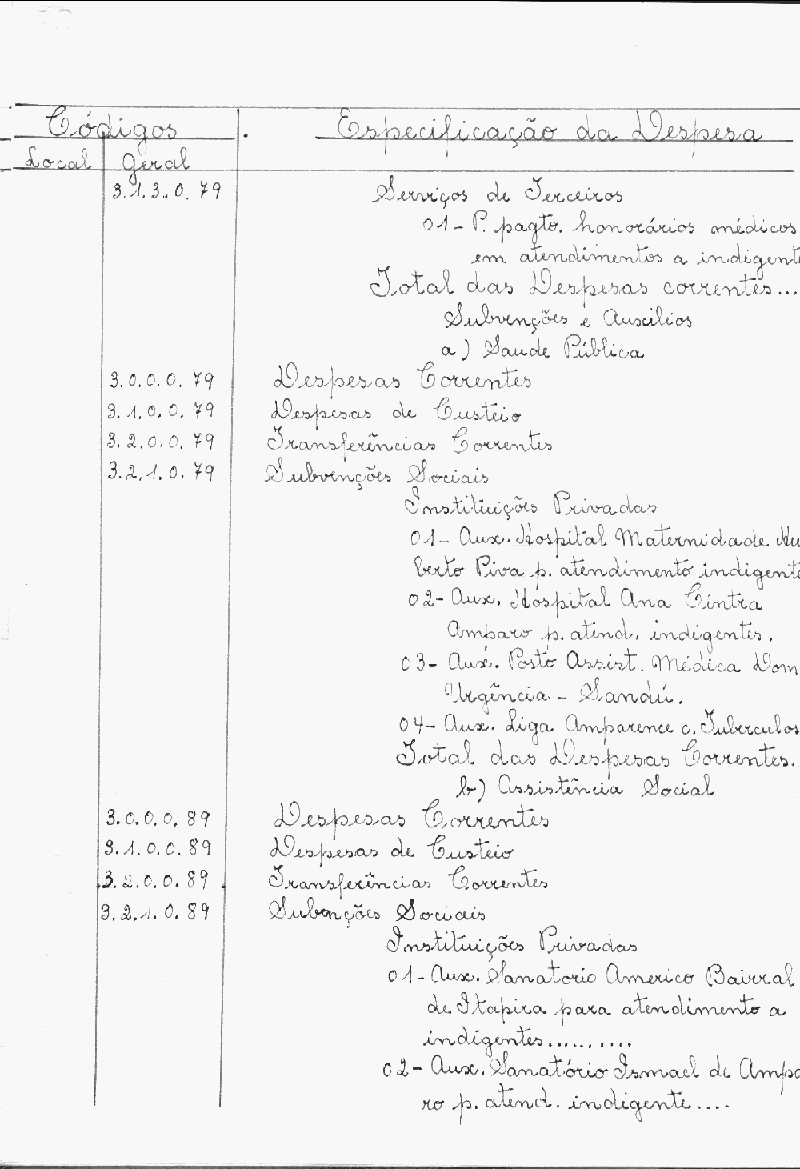 Códigos Especificação da Despesa
Local Geral
3.1.3.0.79 Serviços de Terceiros
01- P. pagto. honorários médicos
em atendimentos a indigente
Total das Despesas correntes...
Subvenções e Auxilios
a) Saude Pública
3.0.0.0.79 Despesas Correntes
3.1.0.0.79 Despesas de Custeio
3.2.0.0.79 Transferências Correntes
3.2.1.0.79 Subvenções Sociais
Instituições Privadas
01- Aux. Hospital Maternidade Hu
berto Piva p. atendimento indigente
02- Aux. Hospital Ana Cintra
Amparo p. atend. indigentes.
03- Aux. Posto Assist. Médica Dom
Urgência - Sandú.
04- Aux. Liga Amparence c. Tuberculos
Total das Despesas Correntes.
b) Assistência Social
3.0.0.0.89 Despesas Correntes
3.1.0.0.89 Despesas de Custeio
3.2.0.0.89 Transferências Correntes
3.2.1.0.89 Subenções Sociais
Instituições Privadas
01- Aux. Sanatorio Americo Bairral
de Itapira para atendimento a
indigentes..........
02- Aux. Sanatório Ismael de Ampa
ro p. atend. indigente....